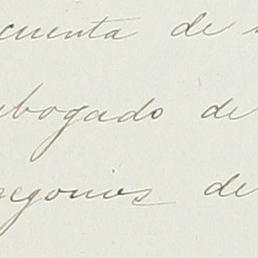 cuenta de
abogado de
negocios de